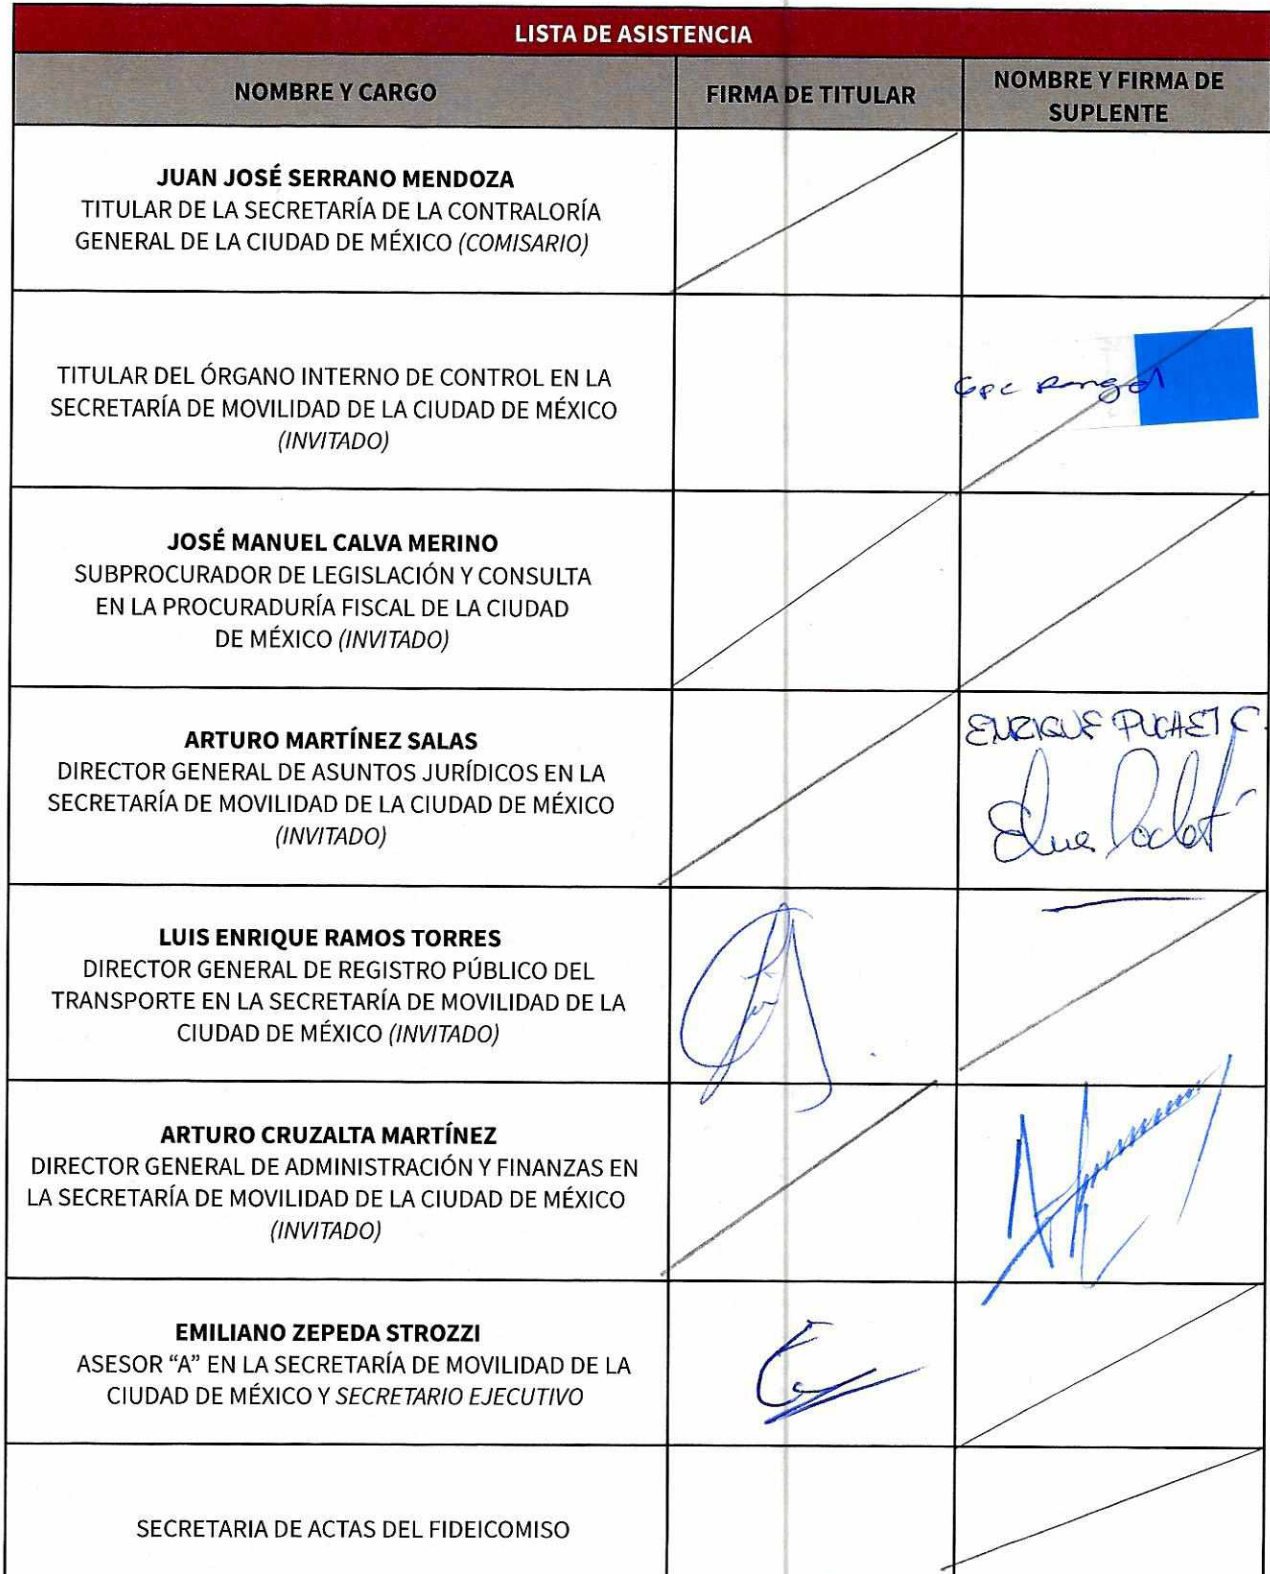 LISTA DE ASISTENCIA
NOMBRE Y CARGO
FIRMA DE TITULAR
NOMBRE Y FIRMA DE
SUPLENTE
JUAN JOSÉ SERRANO MENDOZA
TITULAR DE LA SECRETARÍA DE LA CONTRALORÍA
GENERAL DE LA CIUDAD DE MÉXICO (COMISARIO)
TITULAR DEL ÓRGANO INTERNO DE CONTROL EN LA
SECRETARÍA DE MOVILIDAD DE LA CIUDAD DE MÉXICO
(INVITADO)
JOSÉ MANUEL CALVA MERINO
SUBPROCURADOR DE LEGISLACIÓN Y CONSULTA
EN LA PROCURADURÍA FISCAL DE LA CIUDAD
DE MÉXICO (INVITADO)
ARTURO MARTÍNEZ SALAS
DIRECTOR GENERAL DE ASUNTOS JURÍDICOS EN LA
SECRETARÍA DE MOVILIDAD DE LA CIUDAD DE MÉXICO
(INVITADO)
ENRIQUE
LUIS ENRIQUE RAMOS TORRES
DIRECTOR GENERAL DE REGISTRO PÚBLICO DEL
TRANSPORTE EN LA SECRETARÍA DE MOVILIDAD DE LA
CIUDAD DE MÉXICO (INVITADO)
ARTURO CRUZALTA MARTÍNEZ
DIRECTOR GENERAL DE ADMINISTRACIÓN Y FINANZAS EN
LA SECRETARÍA DE MOVILIDAD DE LA CIUDAD DE MÉXICO
(INVITADO)
EMILIANO ZEPEDA STROZZI
ASESOR “A” EN LA SECRETARÍA DE MOVILIDAD DE LA
CIUDAD DE MÉXICO Y SECRETARIO EJECUTIVO
SECRETARIA DE ACTAS DEL FIDEICOMISO